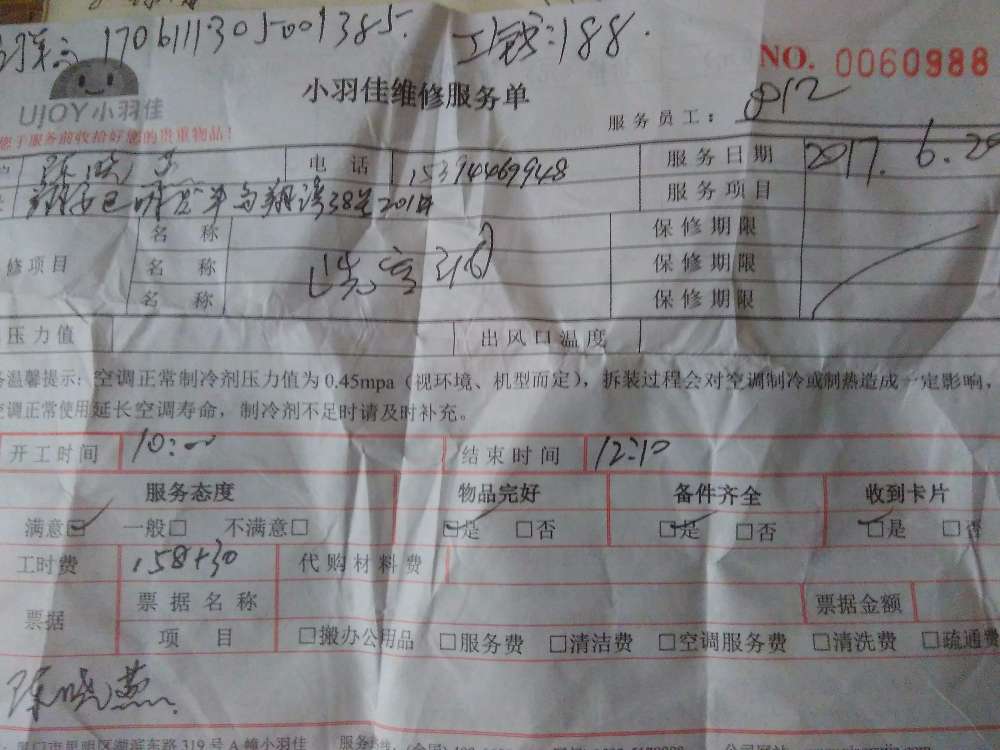 1706111305001385.
工钱:188.
NO. 0060988
UJOY小羽佳
小羽佳维修服务单
服务员工: 812
您于服务前收拾好您的贵重物品!
电话 15394469948 服务日期 2017.6.20
38 201 服务项目
名称 保修期限
修项目 名称 洗空调 保修期限
名称 保修期限
压力值 出风口温度
温馨提示:空调正常制冷剂压力值为0.45mpa(视环境、机型而定),拆装过程会对空调制冷或制热造成一定影响,
调正常使用延长空调寿命,制冷剂不足时请及时补充。
开工时间 10:00 结束时间 12:10
服务态度 物品完好 备件齐全 收到卡片
满意☑ 一般□ 不满意□ ☑是 □否 ☑是 □否 ☑是 □否
工时费 158+30 代购材料费
票据 票据名称 票据金额
项目 □搬办公用品 □服务费 □清洁费 □空调服务费 □清洗费 □疏通费
陈晓燕
明区湖滨东路319号A幢小羽佳 服务 (全国) 公司网站